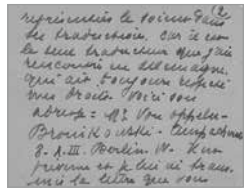 (2
représentés le soient dans
les traductions. Car il est
le seul traducteur que j'aie
rencontré en Allemagne
qui ait toujours respecté
mes droits. Voici son
adresse : Mr Von Oppeln-
Bronikowski -
8. III. Berlin. W.
et je lui ai trans-
mis la lettre que vous